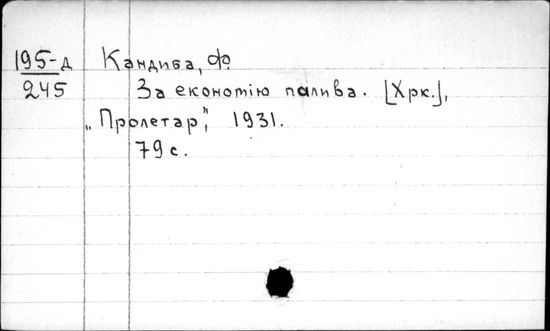 195-д Кандиба, Ф.
245 За економію палива. [Хрк.],
„Пролетар", 1931.
79 с.